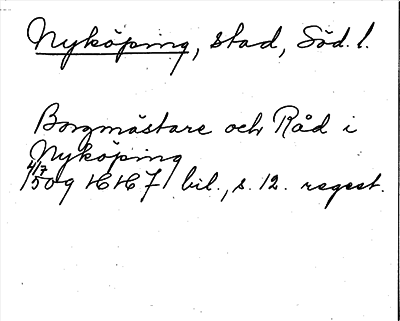 Nyköping, stad, Söd. l.
Borgmästare och Råd i
Nyköping
4/7 1509 HH 71 bil., s. 12. regest.